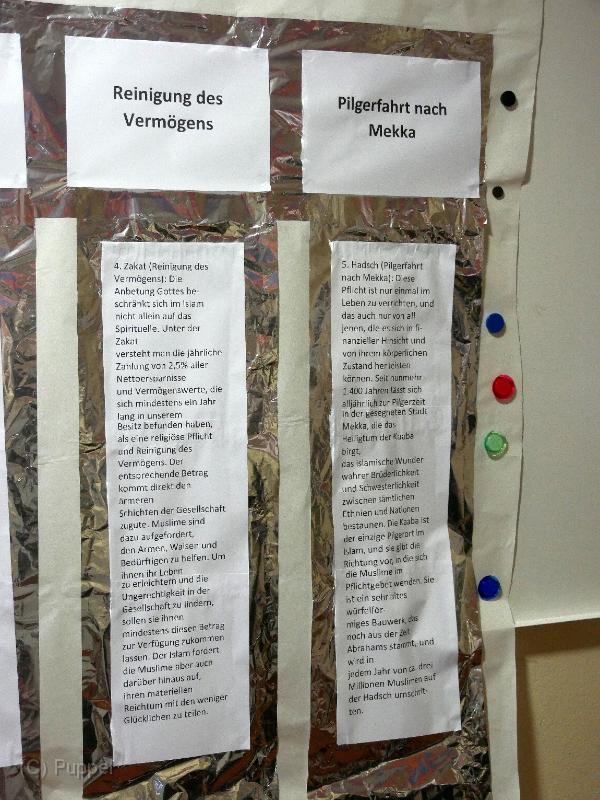 Reinigung des
Vermögens
Pilgerfahrt nach
Mekka
4. Zakat (Reinigung des
Vermögens): Die
Anbetung Gottes be-
schränkt sich im Islam
nicht allein auf das
Spirituelle. Unter der
Zakat
versteht man die jährliche
Zahlung von 2,5% aller
Nettoersparnisse
und Vermögenswerte, die
sich mindestens ein Jahr
lang in unserem
Besitz befunden haben,
als eine religiöse Pflicht
und Reinigung des
Vermögens. Der
entsprechende Betrag
kommt direkt den
ärmeren
Schichten der Gesellschaft
zugute. Muslime sind
dazu aufgefordert,
den Armen, Waisen und
Bedürftigen zu helfen. Um
ihnen ihr Leben
zu erleichtern und die
Ungerechtigkeit in der
Gesellschaft zu lindern,
sollen sie ihnen
mindestens diesen Betrag
zur Verfügung zukommen
lassen. Der Islam fordert
die Muslime aber auch
darüber hinaus auf,
ihren materiellen
Reichtum mit den weniger
Glücklichen zu teilen.
5. Hadsch (Pilgerfahrt
nach Mekka): Diese
Pflicht ist nur einmal im
Leben zu verrichten, und
das auch nur von all
jenen, die es sich in fi-
nanzieller Hinsicht und
von ihrem körperlichen
Zustand her leisten
können. Seit nunmehr
1.400 Jahren lässt sich
alljährlich zur Pilgerzeit
in der gesegneten Stadt
Mekka, die das
Heiligtum der Kaaba
birgt,
das islamische Wunder
wahrer Brüderlichkeit
und Schwesterlichkeit
zwischen sämtlichen
Ethnien und Nationen
bestaunen. Die Kaaba ist
der einzige Pilgerort im
Islam, und sie gibt die
Richtung vor, in die sich
die Muslime im
Pflichtgebet wenden. Sie
ist ein sehr altes
würfelför-
miges Bauwerk, das
noch aus der Zeit
Abrahams stammt, und
wird in
jedem Jahr von ca. drei
Millionen Muslimen auf
der Hadsch umschrit-
ten.
(C) Puppel